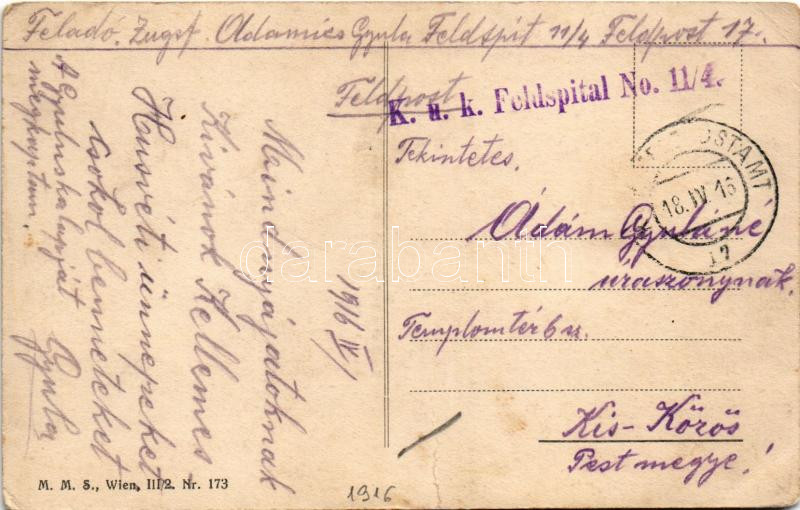 Feladó. Zugsf. Adamics Gyula Feldspit 11/4 Feldpost 17.
Feldpost
K. u. k. Feldspital No. 11/4.
Tekintetes.
Ádám Gyuláné
uraszonynak.
Templomtér 6 sz.
Kis-Körös
Pest megye!
POSTAMT
18.IV.16
17
1916 IV/
Maindanyájatoknak
Kivánok Kellemes
Husvéti ünnepeket
csokol benneteket
Gyula
A Gyulnska lapját
megkaptam.
darabanth
M. M. S., Wien, III/2. Nr. 173
1916